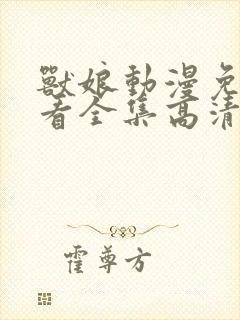 獸娘動漫免
看全集高清
霍尊方